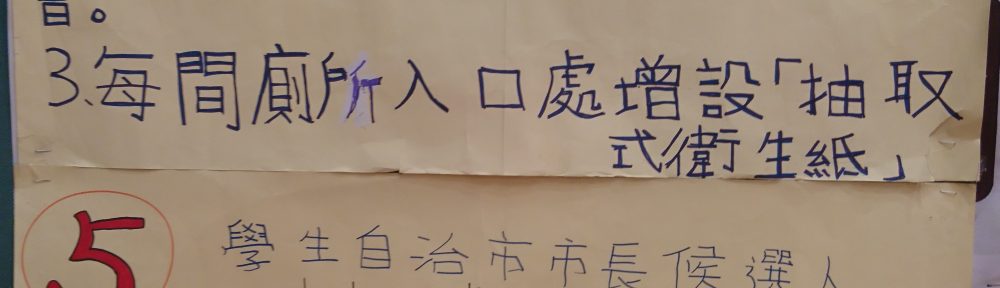 音。
3.每間廁所入口處增設「抽取
式衛生紙」
5
學生自治市市長候選人